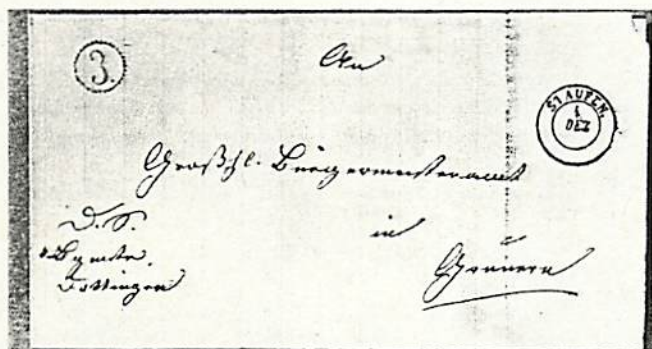 3.
An
STAUFEN.
DEZ
Großhl. Bürgermeisteramt
D. S.
in
Grunern
Dottingen